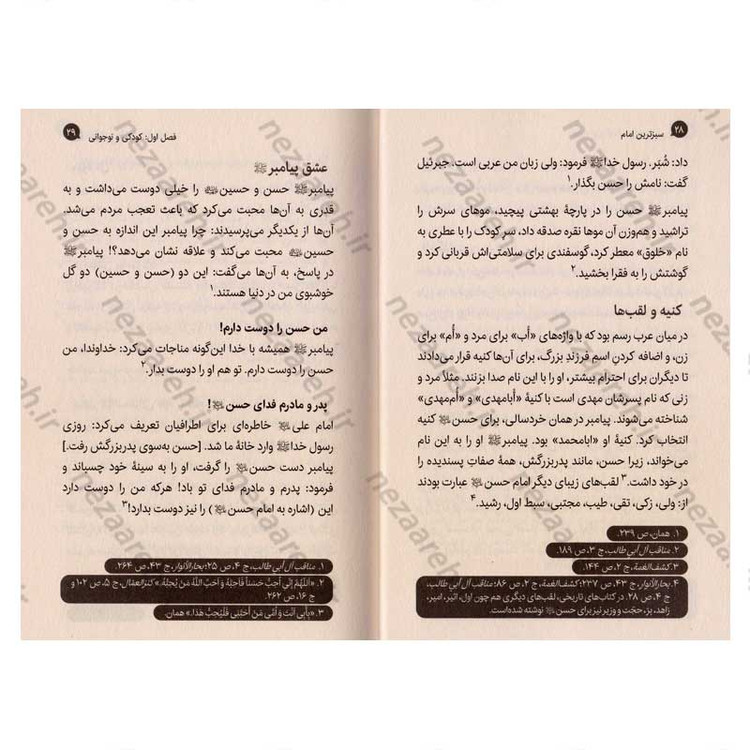 ۲۸ سبزترین امام
داد: شُبّر. رسول خداﷺ فرمود: ولی زبان من عربی است. جبرئیل
گفت: نامش را حسن بگذار.۱
پیامبرﷺ حسن را در پارچهٔ بهشتی پیچید، موهای سرش را
تراشید و هم‌وزن آن موها نقره صدقه داد، سر کودک را با عطری به
نام «خلوق» معطر کرد، گوسفندی برای سلامتی‌اش قربانی کرد و
گوشتش را به فقرا بخشید.۲
کنیه و لقب‌ها
در میان عرب رسم بود که با واژه‌های «أب» برای مرد و «أُم» برای
زن، و اضافه کردن اسم فرزندِ بزرگ، برای آن‌ها کنیه قرار می‌دادند
تا دیگران برای احترام بیشتر، او را با این نام صدا بزنند. مثلاً مرد و
زنی که نام پسرشان مهدی است با کنیهٔ «أبامهدی» و «أم‌مهدی»
شناخته می‌شوند. پیامبر در همان خردسالی، برای حسن کنیه
انتخاب کرد. کنیهٔ او «ابامحمد» بود. پیامبرﷺ او را به این نام
می‌خواند، زیرا حسن، مانند پدربزرگش، همهٔ صفاتِ پسندیده را
در خود داشت.۳ لقب‌های زیبای دیگر امام حسن عبارت بودند
از: ولی، زکی، تقی، طیب، مجتبی، سبط اول، رشید.۴
۱. همان، ص ۲۳۹.
۲. مناقب آل أبی طالب، ج ۳، ص ۱۸۹.
۳. کشف الغمة، ج ۲، ص ۱۴۴.
۴. بحارالأنوار، ج ۴۳، ص ۲۳۷؛ کشف الغمة، ج ۲، ص ۸۶؛ مناقب آل أبی طالب،
ج ۴، ص ۲۸. در کتاب‌های تاریخی، لقب‌های دیگری هم چون اول، اثیر، امیر،
زاهد، بَرّ، حجّت و وزیر نیز برای حسن نوشته شده‌است.
فصل اول: کودکی و نوجوانی ۲۹
عشق پیامبر ﷺ
پیامبرﷺ حسن و حسین را خیلی دوست می‌داشت و به
قدری به آن‌ها محبت می‌کرد که باعث تعجب مردم می‌شد.
آن‌ها از یکدیگر می‌پرسیدند: چرا پیامبر این اندازه به حسن و
حسین محبت می‌کند و علاقه نشان می‌دهد؟! پیامبرﷺ
در پاسخ، به آن‌ها می‌گفت: این دو (حسن و حسین) دو گل
خوشبوی من در دنیا هستند.۱
من حسن را دوست دارم!
پیامبرﷺ همیشه با خدا این‌گونه مناجات می‌کرد: خداوندا، من
حسن را دوست دارم. تو هم او را دوست بدار.۲
پدر و مادرم فدای حسن !
امام علی خاطره‌ای برای اطرافیان تعریف می‌کرد: روزی
رسول خداﷺ وارد خانهٔ ما شد. [حسن به‌سوی پدربزرگش رفت.]
پیامبر دست حسن را گرفت، او را به سینهٔ خود چسباند و
فرمود: پدرم و مادرم فدای تو باد! هرکه من را دوست دارد
این (اشاره به امام حسن ) را نیز دوست بدارد!۳
۱. مناقب آل أبی طالب، ج ۴، ص ۲۵؛ بحارالأنوار، ج ۴۳، ص ۲۶۴.
۲. «اَللّهُمَّ إِنّی أُحِبُّ حَسَناً فَأَحِبَّهُ وَ أَحِبَّ اللّهُ مَنْ یُحِبُّهُ.» کنز العمال، ج ۵، ص ۱۰۲ و
ج ۱۶، ص ۲۶۲.
۳. «بِأَبی أَنْتَ وَ أُمّی مَنْ أَحَبَّنی فَلْیُحِبَّ هذا.» همان.
nezaareh.ir